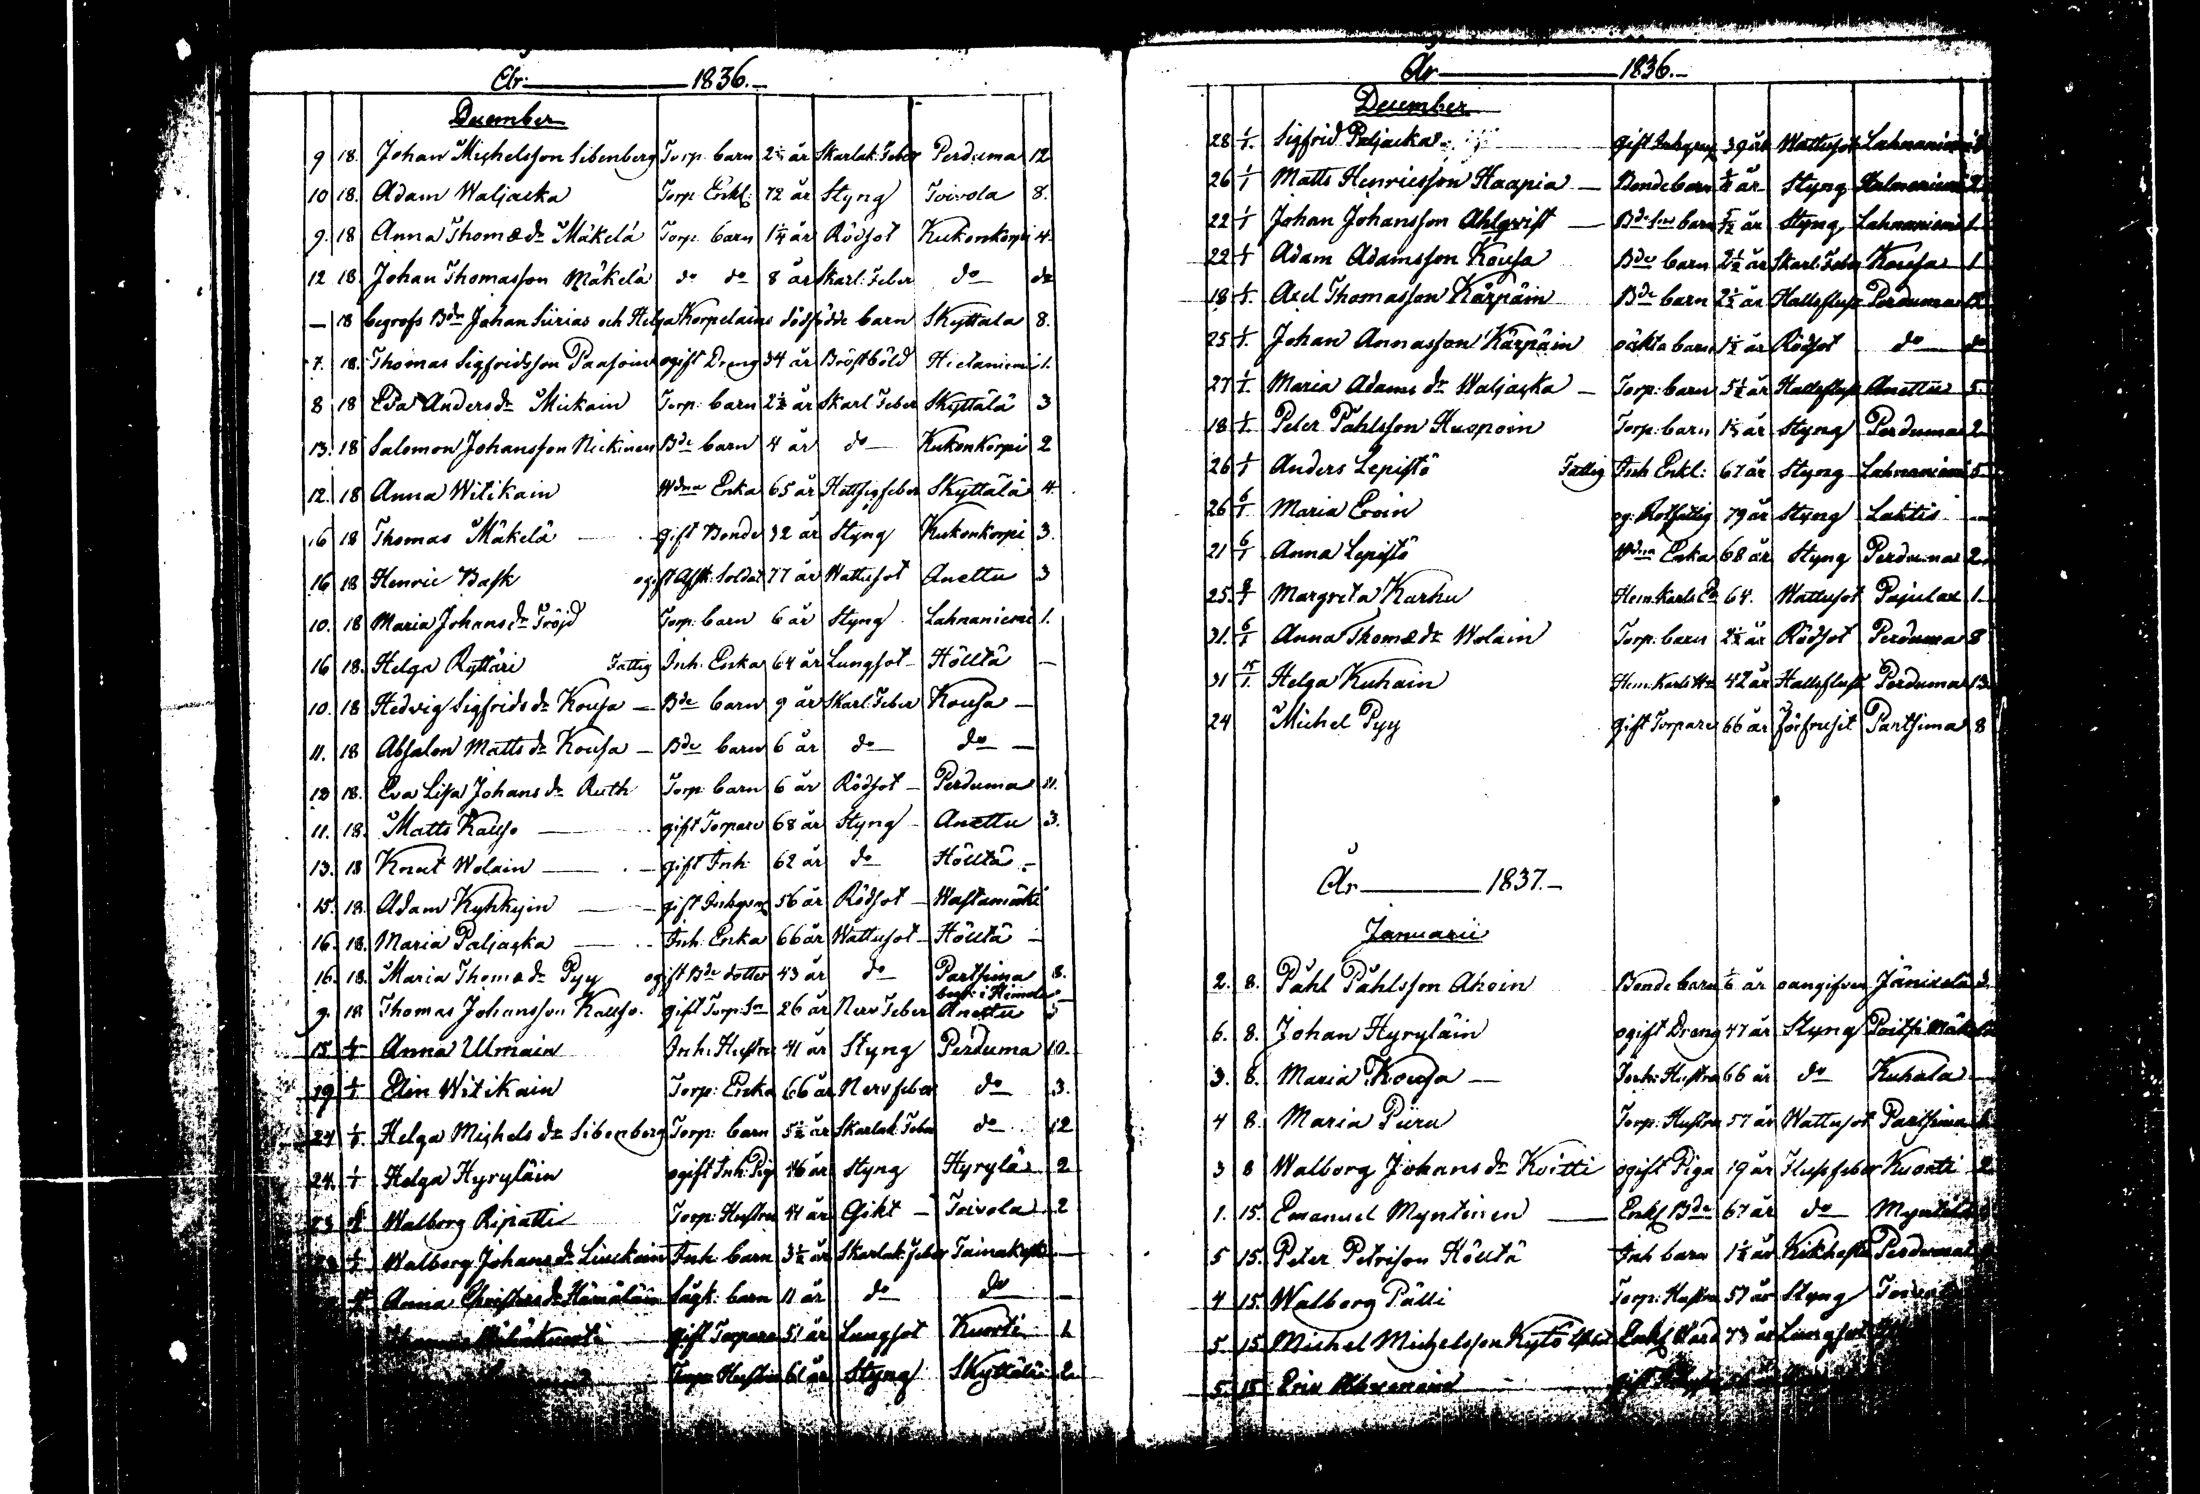 År 1836.
December
9 18. Johan Michelsson Sibenberg Torp. barn 2½ år Skarlak: Feber Perduma 12
10 18. Adam Waljacka Torp. Enkl: 72 år Styng Toivola 8.
9. 18 Anna Thomæ dr Mäkelä Torp. barn 1¼ år Rödsot Kukonkorpi 4.
12 18. Johan Thomasson Mäkelä do do 8 år Skarl: Feber do do
— 18 begrofs Bdn Johan Siirias och Helga Korpelains dödfödde barn Skyttala 8.
7. 18. Thomas Sigfridsson Paasoin ogift Dreng 34 år Bröstböld Hietaniemi 1.
8 18 Eva Anders dr Mickain Torp. barn 2½ år Skarl Feber Skyttälä 3
13. 18 Salomon Johansson Nickinen Bde barn 4 år do Kukonkorpi 2
12. 18 Anna Witikain Wdna Enka 65 år Hettsigfeber Skyttälä 4.
16 18 Thomas Mäkelä gift Bonde 32 år Styng Kukonkorpi 3.
16 18 Henric Bask ogift Afsk: Soldat 77 år Wattusot Anettu 3
10. 18 Maria Johans dr Fröjd Torp. barn 6 år Styng Lahnaniemi 1.
16 18. Helga Ryttäri Fattig Inh. Enka 64 år Lungsot Hölttä —
10. 18 Hedvig Sigfrids dr Kousa — Bde barn 9 år Skarl: Feber Kousa —
11. 18 Absalon Matts dr Kousa — Bde barn 6 år do do —
12 18. Eva Lisa Johans dr Ruth Torp. barn 6 år Rödsot Perduma 11.
11. 18. Matts Kauso gift Torpare 68 år Styng Anettu 3.
13. 18 Knut Wolain gift Inh. 62 år do Hölttä —
15. 18. Adam Kyhkyin gift Inhysn 56 år Rödsot Wastamäki
16. 18. Maria Paljacka Inh: Enka 66 år Wattusot Hölttä —
16. 18. Maria Thomæ dr Pyy ogift Bde dotter 43 år do Partsima 8.
begr: i Heinola
9. 18 Thomas Johansson Kauso. gift Torp: Sn 26 år Nerv Feber Anettu 5
15 1/1 Anna Ulmain Inh: Hustru 41 år Styng Perduma 10.
19 1/1 Elin Witikain Torp: Enka 66 år Nervfeber do 3.
24 1/1 Helga Michels dr Sibenberg Torp: barn 5½ år Skarlak: Feber do 12
24. 1/1 Helga Hyryläin ogift Inh: Pig 46 år Styng Hyrylä 2
23 Walborg Ripatti Torp: Hustru 41 år Gikt Toivola 2
1/1 Walborg Johans dr Liuckain Inh barn 3½ år Skarlak: Feber
Anna Christers dr Hämäläin barn 11 år do do —
gift Torpare 51 år Lungsot Kuorti 1.
Torp: Hustru 61 år Styng Skyttälä 2.
År 1836.
December
28 1/1. Sigfrid Paljacka gift Inhysn 39 år Wattusot Lahnaniemi
26 1/1 Matts Henricsson Haapia — Bondebarn år Styng 2
22 1/1 Johan Johansson Ahlqvist — barn år Styng Lahnaniemi 1.
22 1/1 Adam Adamsson Kousa Bde barn 2½ år Skarl: Feber Kousa 1
18 1/1. Axel Thomasson Kärpäin Bde barn 2½ år Hallsfluss Perduma 12
25 1/1. Johan Annasson Kärpäin oäkta barn 1½ år Rödsot do do
27 1/1. Maria Adams dr Waljacka — Torp: barn 5½ år Hallsfluss Anettu 5.
18 1/1. Peter Påhlsson Huopoin Torp: barn år Styng Perduma 2.
26 1/1 Anders Lepistö Fattig Inh Enkl: 67 år Styng Lahnaniemi 5.
26 6/1 Maria Eroin og: Rotfattig 79 år Styng Laktis —
21 6/1 Anna Lepistö Wdna Enka 68 år Styng Perduma 2.
25. Margreta Karhu 64. Wattusot Pajulax 1.
31. 6/1 Anna Thomæ dr Wolain Torp: barn 2½ år Rödsot Perduma 8
31 15/1. Helga Kuhain 42 år Hallsflust Perduma 13.
24 Michel Pyy gift Torpare 66 år förfrusit Partsima 8
År 1837.
Januarii
2. 8. Påhl Påhlsson Ahoin Bonde barn år oangifven 3.
6. 8. Johan Hyryläin ogift Dreng 47 år Styng
3. 8. Maria Kousa — Inh: Hustru 66 år do Kuhala —
4 8. Maria Piiru Torp: Hustru 57 år Wattusot Partsima
3 8 Walborg Johans dr Kvitti ogift Piga 19 år Flussfeber Kuorti 2.
1. 15. Emanuel Myntinen Enkl Bde 67 år do
5 15. Peter Petrison Hölttä Inh barn 1½ år Kikhosta Perduma
4 15. Walborg Pälli Torp: Hustru 57 år Styng
5. 15 Michel Michelsson Kytö 73 år Lungsot
5. 15